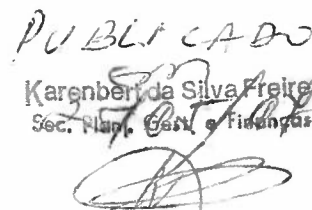 PUBLICADO
Karenbert da Silva Freire
Sec. Plan. Gest. e Finanças